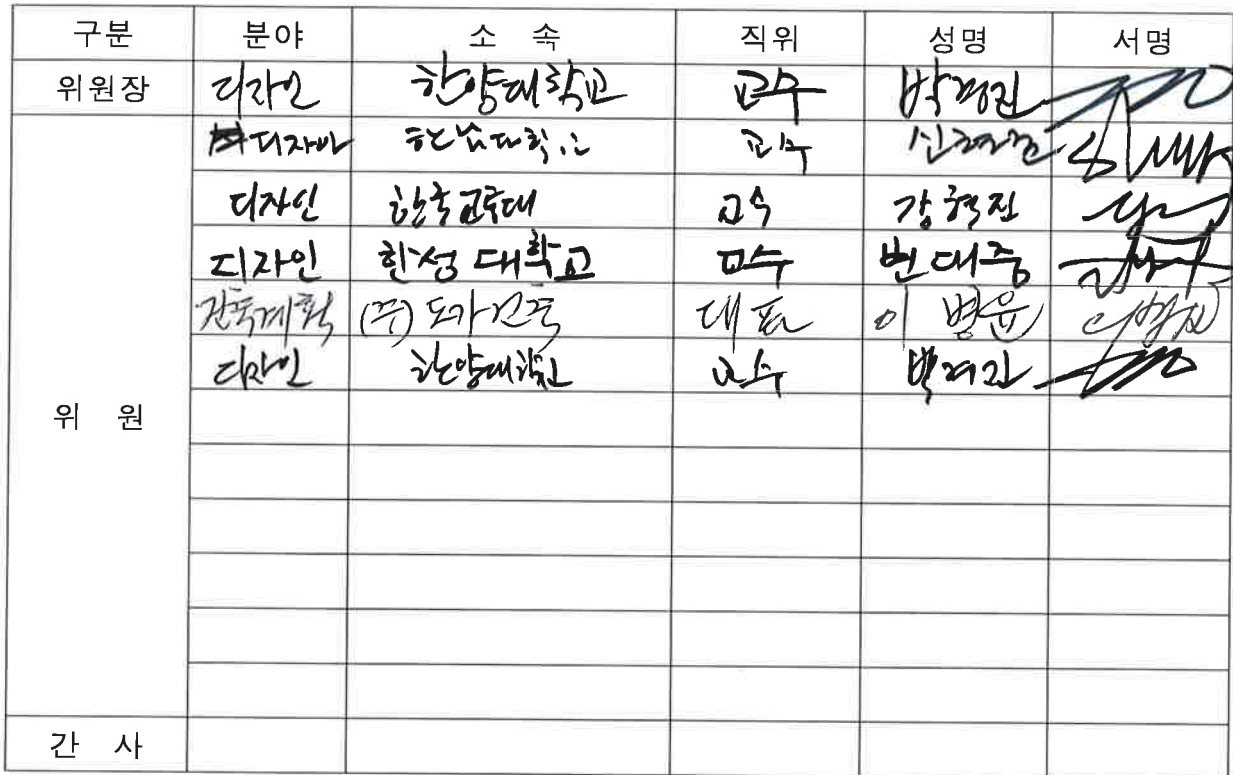 구분 분야 소 속 직위 성명 서명
위원장 디자인 한양대학교 교수 박경진
디자인 한남대학교 교수
디자인 한국교통대 교수 강혁진
디자인 한성대학교 교수 변대중
건축계획 (주)도가건축 대표 이병윤
디자인 한양대학교 교수 박경진
위 원
간 사